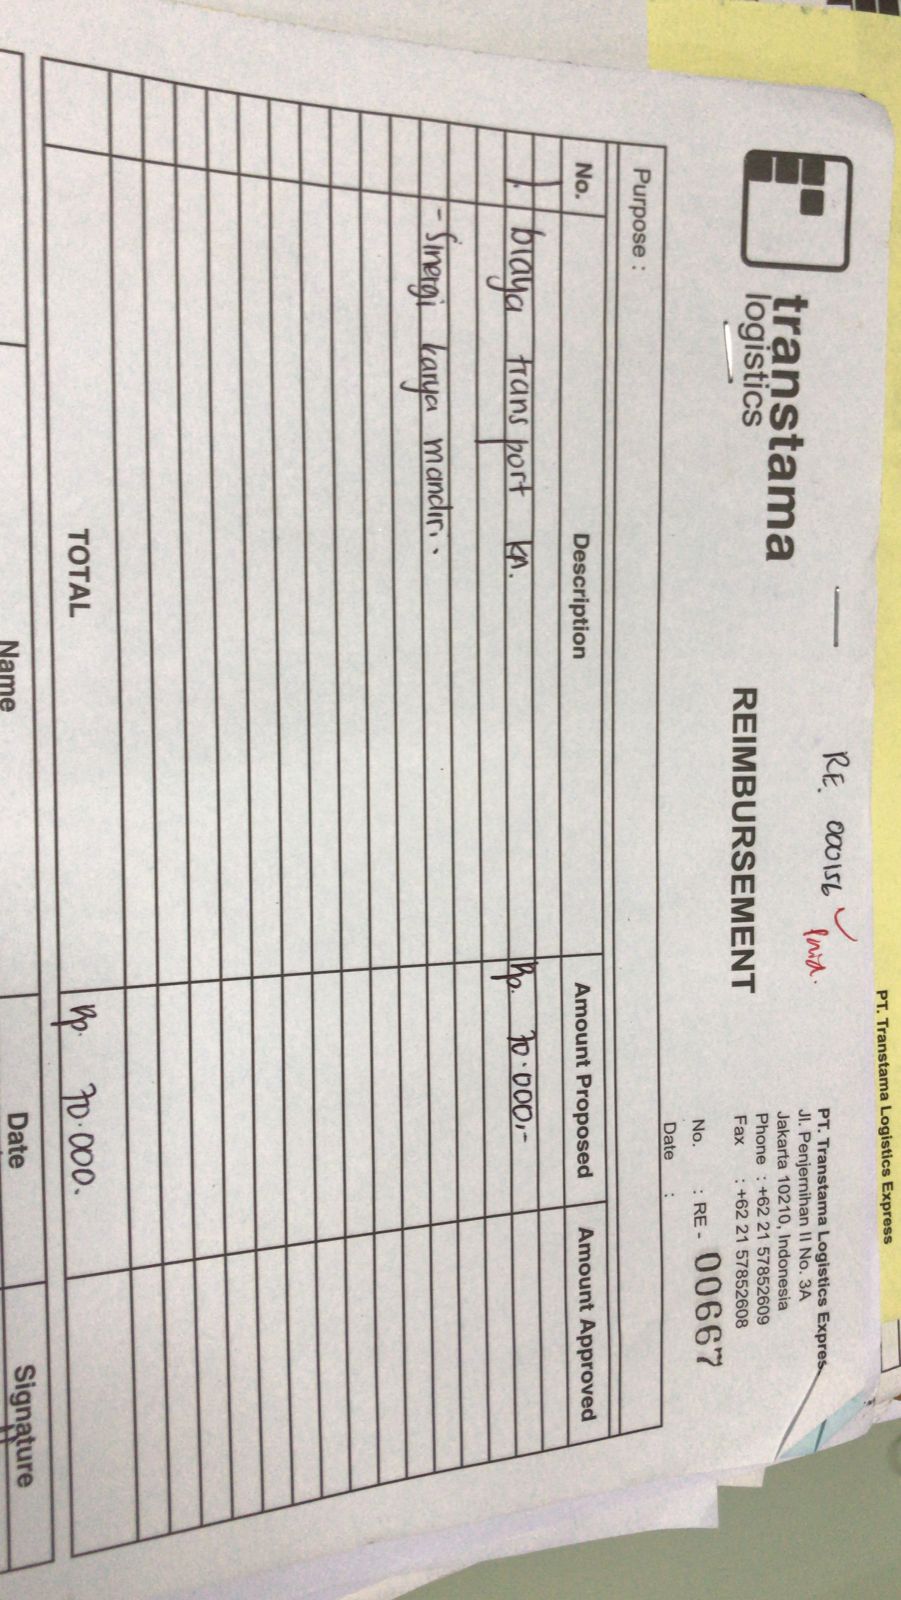 PT. Transtama Logistics Express
RE. 000156 ✓ Paid.
transtama
logistics
REIMBURSEMENT
PT. Transtama Logistics Expres
Jl. Penjernihan II No. 3A
Jakarta 10210, Indonesia
Phone : +62 21 57852609
Fax : +62 21 57852608
No. : RE - 00667
Date :
Purpose :
No. Description Amount Proposed Amount Approved
1. biaya transport kn. Rp. 70.000,-
- Sinergi karya mandiri.
TOTAL Rp. 70.000.
Name Date Signature